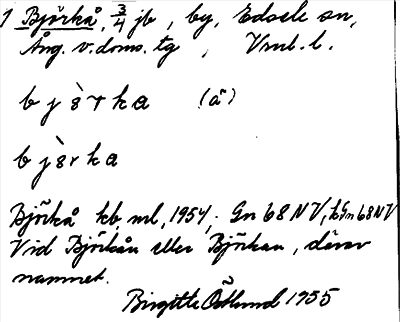 1 Björkå, 3/4 jb, by, Edsele sn,
Ång. v. doms. tg, Vnrl. l.
b j ö̀ r k a (å)
b j ö̀ r k a
Björkå kb, ml, 1954; Gn 68 NV, k Gn 68 NV
Vid Björkån eller Björkan, därav
namnet.
Birgitta Östlund 1955